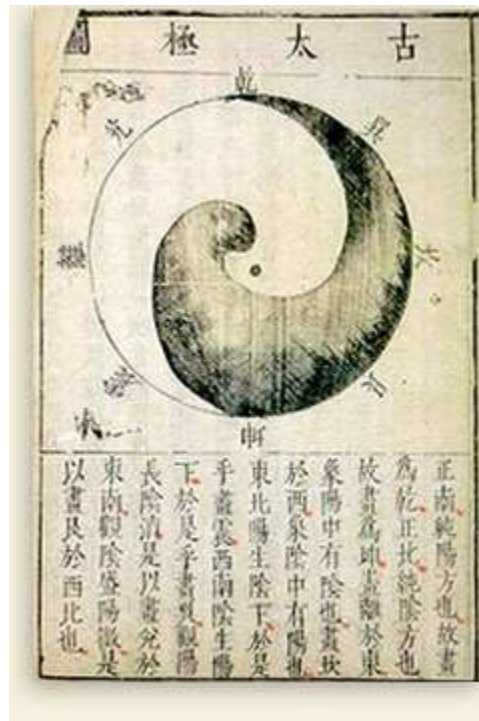 古太極圖
乾
兌
離
坎
坤
正南純陽方也故畫
爲乾正北純陰方也
故畫爲坤畫離於東
象陽中有陰也畫坎
於西象陰中有陽也
東北陽生陰下於是
乎畫震西南陰生陽
下於是乎畫巽觀陽
長陰消是以畫兌於
東南觀陰盛陽微是
以畫艮於西北也